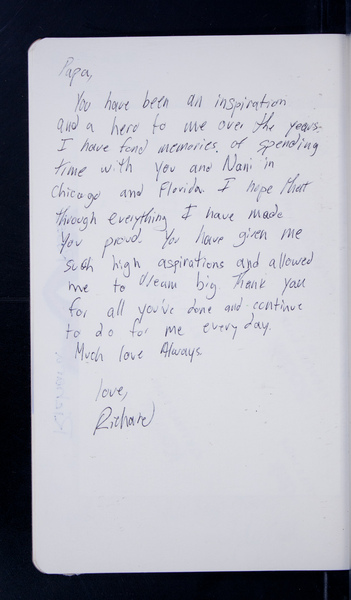 Papa,
You have been an inspiration
and a hero to me over the years.
I have fond memories of spending
time with you and Nani in
Chicago and Florida. I hope that
through everything I have made
you proud. You have given me
such high aspirations and allowed
me to dream big. Thank you
for all you've done and continue
to do for me every day.
Much love Always.
love,
Richard